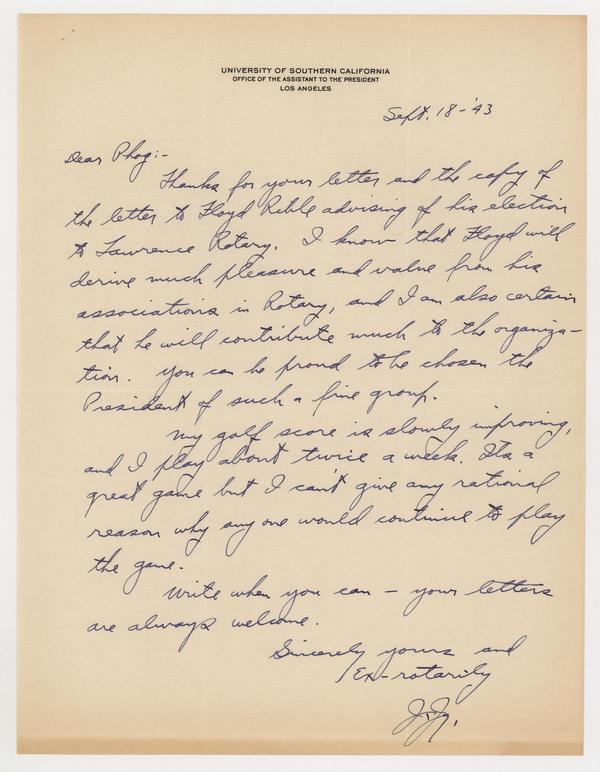 UNIVERSITY OF SOUTHERN CALIFORNIA
OFFICE OF THE ASSISTANT TO THE PRESIDENT
LOS ANGELES
Sept. 18-'43
Dear Phog:-
Thanks for your letter and the copy of
the letter to Floyd Rible advising of his election
to Lawrence Rotary. I know that Floyd will
derive much pleasure and value from his
associations in Rotary, and I am also certain
that he will contribute much to the organiza-
tion. You can be proud to be chosen the
President of such a fine group.
My golf score is slowly improving,
and I play about twice a week. Its a
great game but I can't give any rational
reason why any one would continue to play
the game.
Write when you can - your letters
are always welcome.
Sincerely yours and
Ex-rotarily